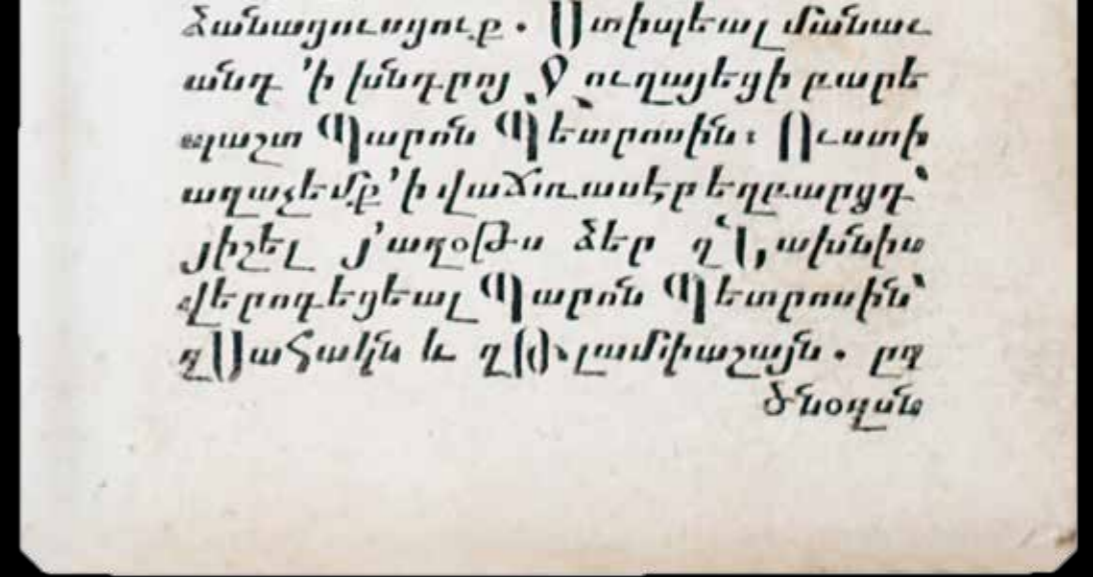 ձանացուսցուք. Ստիպեալ մանաւ
անդ 'ի խնդրոյ Ջուղայեցի բարե
պաշտ Պարոն Պետրոսին: Ուստի
աղաչեմք 'ի վաճառասէր եղբարցդ՝
յիշել յ'աղօթս ձեր զ՝նախնիս
վերոգեցեալ Պարոն Պետրոսին՝
զՍահակն և զ՝Թլամիաշայն. ըզ
ծնօղսն